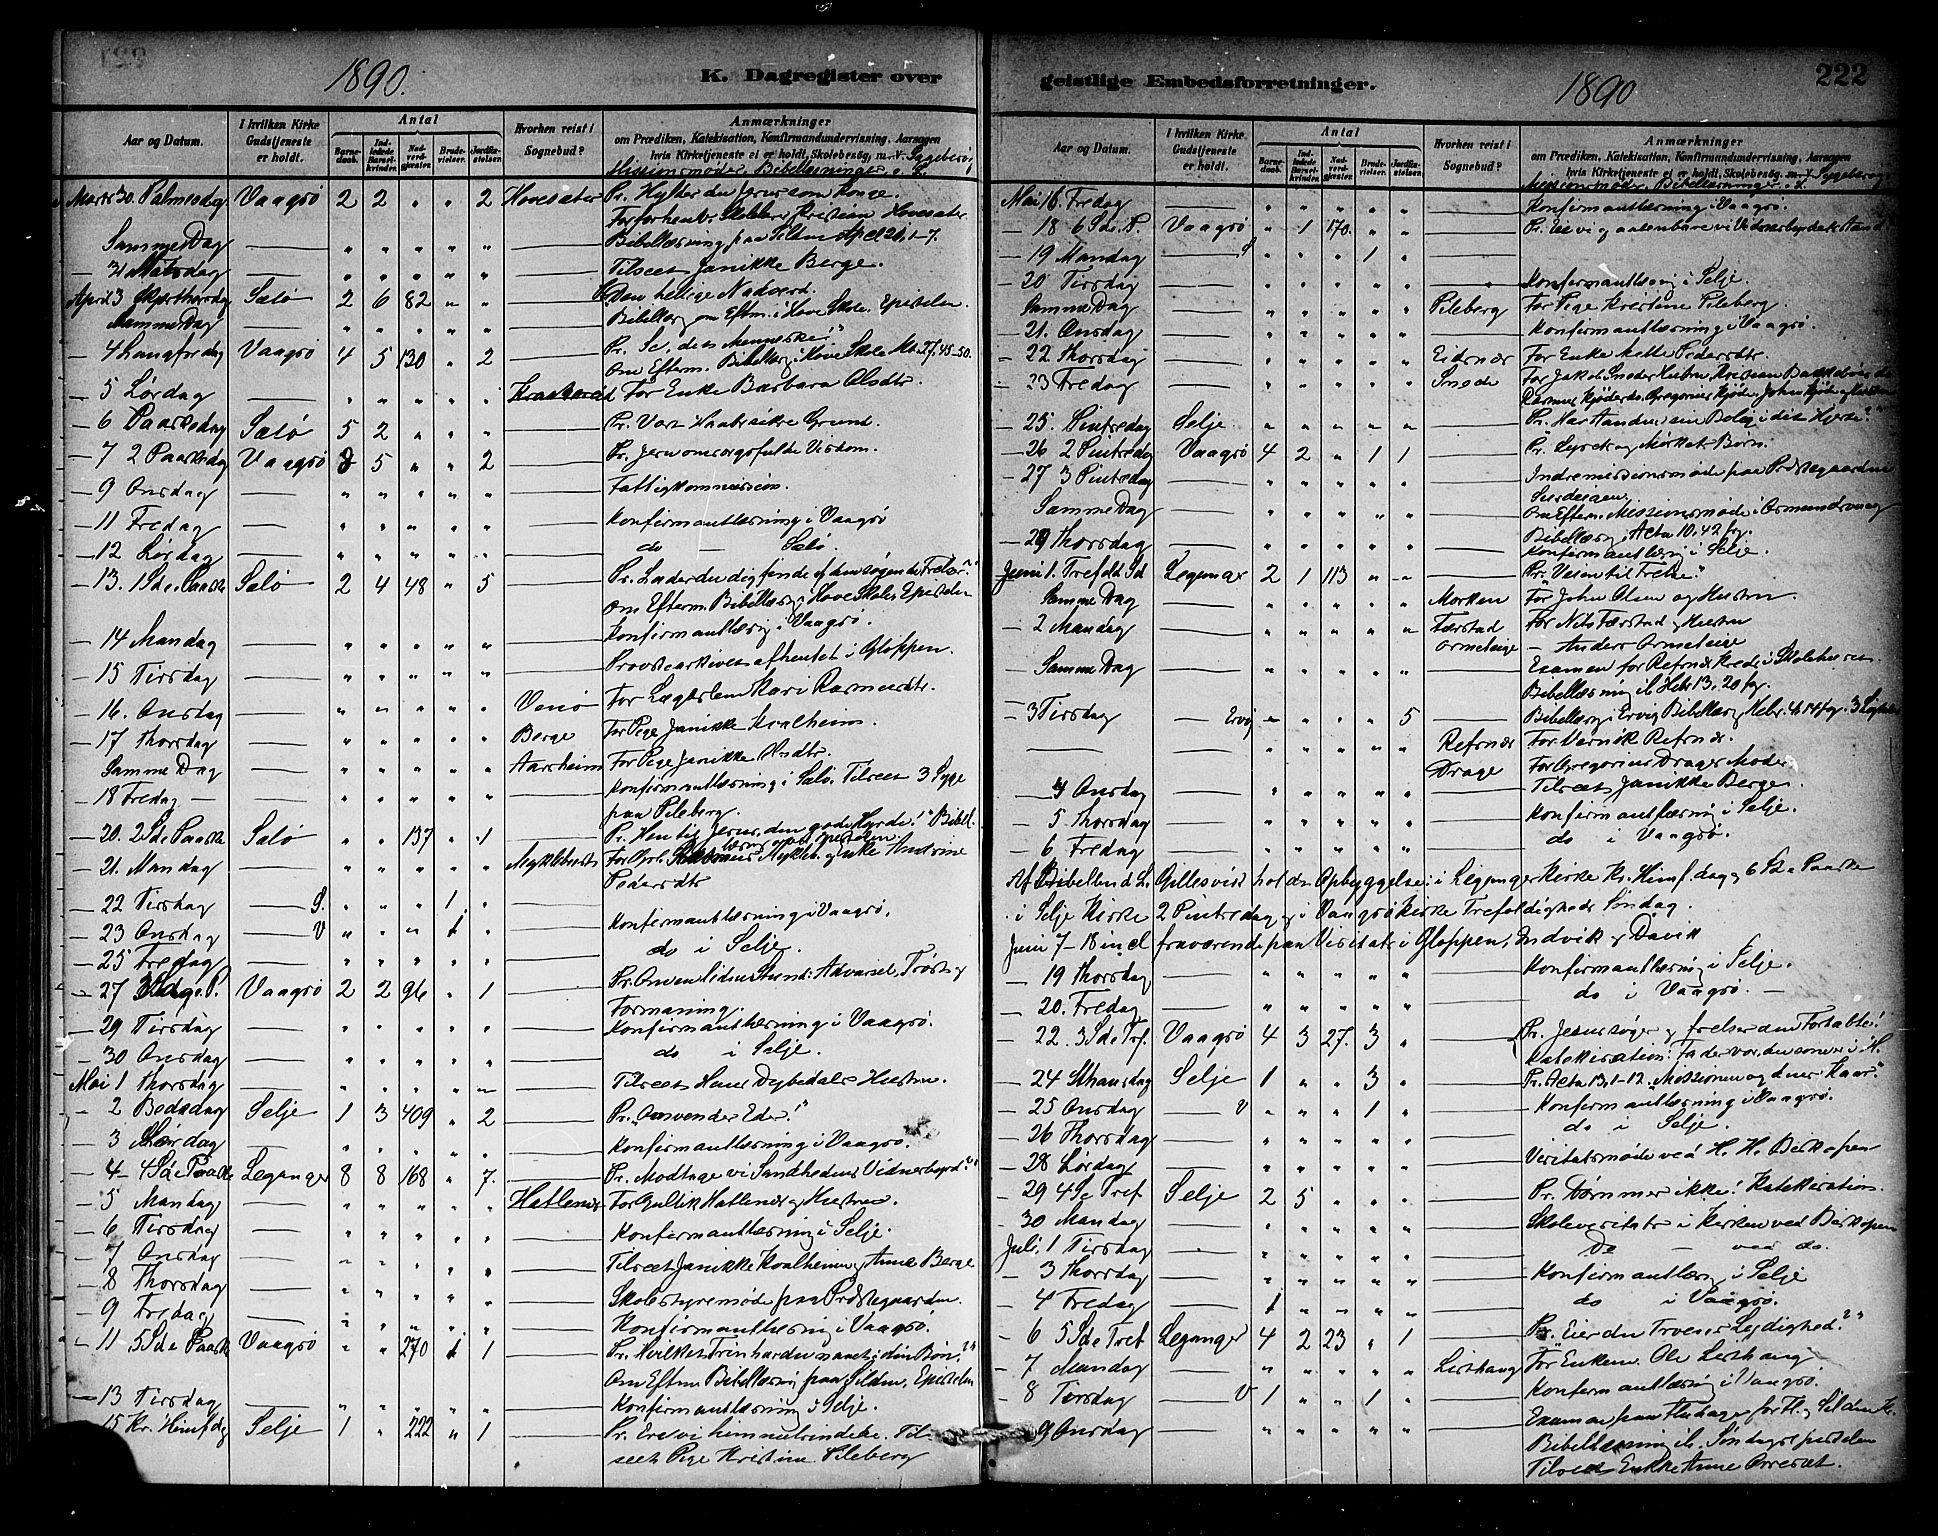 1890.
K. Dagregister over
Aar og Datum.
I hvilken Kirke Gudstjeneste er holdt.
Antal
Barnedaab.
Indledede Barselkvinder.
Nadverdgjester.
Brudevielser.
Jordfæstelser.
Hvorhen reist i Sognebud?
Anmærkninger
om Prædiken, Katekisation, Konfirmandundervisning, Aarsagen
hvis Kirketjeneste ei er holdt, Skolebesøg, m. v. Sygebesøg
Missionsmøder, Bibellæsninger o. l.
Marts 30. Palmesdag Vaagsø 2 2 " " 2 Hovesæter Pr. Hylder du Jesus som Konge
Samme Dag — " " " " " — Bibellæsning paa Silden
— 31 Mandag — " " " " " — Tilseet Janikke Berge.
April 3 Skjærthorsdag Selø 2 6 82 " " — Den hellige Nadverd.
Samme Dag — " " " " " — Bibellæsg om Eftm. i Hove Skole. Epistelen.
— 4 Langfredag Vaagsø 4 5 130 " 2 — Pr. Se, det Menneske!"
Om Efterm. Bibellæsg i Hove Skole Mt. 27, 45-50.
5 Lørdag — " " " " " For Enke Barbara Olsdtr.
— 6 Paaskedag Selø 5 2 " " " — Pr. Vort Haabs sikre Grund.
— 7 2 Paaskedag Vaagsø 3 5 " " 2 — Pr. Jesu omsorgsfulde Visdom.
— 9 Onsdag — " " " " " — Fattigkommission.
— 11 Fredag — " " " " " — Konfirmantlæsning i Vaagsø
— 12 Lørdag — " " " " " — do — Selø.
— 13. 1 Sd e. Paaske Selø 2 4 48 " 5 — Pr. Lader du dig finde af den søgende Frelser?"
om Efterm. Bibellæsg i Hove Skole, Epistelen
— 14 Mandag — " " " " " — Konfirmantlæsg i Vaagsø.
— 15 Tirsdag — " " " " " — Provstearkivet afhentet i Gloppen.
— 16. Onsdag — " " " " " Venø For Lægdslem Kari Rasmusdtr.
— 17 Thorsdag — " " " " " Berge For Pige Janikke Kvalheim.
Samme Dag — " " " " " Aarsheim For Pige Janikke
— 18 Fredag — " " " " " — Konfirmantlæsning i Selø. Tilseet 3 Syge
paa Pileberg.
— 20. 2 Sd e Paaske Selø " " 137 " 1 — Pr. Hen til Jesus, den gode Hyrde!" Bibel-
læsning over Epistelen.
— 21. Mandag — " " " " " Myklebust
Pedersdtr
— 22 Tirsdag — S. " " " 1 "
— 23 Onsdag — V " " " 1 " — Konfirmantlæsning i Vaagsø.
— 25 Fredag — " " " " " — do i Selje.
— 27 3 Sd e. P. Vaagsø 2 2 96 " 1 — Pr. Om en liden Stund: Advarsel, Trøst og
Formaning.
— 29 Tirsdag — " " " " " — Konfirmantlæsning i Vaagsø.
— 30 Onsdag — " " " " " — do i Selje.
Mai 1 Thorsdag — " " " " " — Tilseet Hans Dybedals Hustru.
— 2 Bededag Selje 1 3 409 " 2 — Pr. "Omvender Eder!"
— 3 Lørdag — " " " " " — Konfirmantlæsning i Vaagsø.
— 4 4 Sd e Paaske Leganger 8 8 168 " 7. — Pr. Modtage vi Sandhedens Vidnesbyrd?"
— 5 Mandag — " " " " " Hatlenes For Gullik Hatlenes og Hustru.
— 6 Tirsdag — " " " " " — Konfirmantlæsning i Selje.
— 7 Onsdag — " " " " " — Tilseet Janikke Kvalheim og Anne Berge
— 8 Thorsdag — " " " " " — Skolestyremøde paa Præstegaarden.
— 9 Fredag — " " " " " — Konfirmantlæsning i Vaagsø.
— 11 5 Sd e Paaske Vaagsø " " 270 1 1 — Pr. Hvilket Trin har du naaet i din Bøn?"
Om Eftm Bibellæsng paa Silden, Epistelen
— 13 Tirsdag — " " " " " — Konfirmantlæsning i Selje.
15 Kr. Himf dg Selje 1 " 222 " 1 — Pr. Ere vi himmelsindede. Til-
seet Pige Kristine Pileberg

geistlige Embedsforretninger.
1890
222
Aar og Datum.
I hvilken Kirke Gudstjeneste er holdt.
Antal
Barnedaab.
Indledede Barselkvinder.
Nadverdgjester.
Brudevielser.
Jordfæstelser.
Hvorhen reist i Sognebud?
Anmærkninger
om Prædiken, Katekisation, Konfirmandundervisning, Aarsagen
hvis Kirketjeneste ei er holdt, Skolebesøg, m. v. Sygebesøg
Missionsmøder, Bibellæsninger o. l.
Mai 16 Fredag — " " " " " — Konfirmantlæsning i Vaagsø.
— 18 6 Sd e. P. Vaagsø " 1 170. " "
— 19 Mandag — S " " " 1 "
— 20 Tirsdag — " " " " " — Konfirmantlæsng i Selje.
Samme Dag — " " " " " Pileberg For Pige Kristine Pileberg.
— 21. Onsdag — " " " " " — Konfirmantlæsning i Vaagsø.
— 22 Thorsdag — " " " " " Eidsnes For Enke Mette Pedersdtr.
— 23 Fredag — " " " " " Snøde
— 25. Pintsedag Selje " " " " " — Pr. Har Aanden sin Bolig i det Hjerte?"
— 26 2 Pintsedag Vaagsø 4 2 " 1 1 — Pr. Lysets og Mørkets Børn.
— 27 3 Pintsedag — " " " " " — Indremissionsmøde paa Præstegaarden
Samme Dag — " " " " " — Om Efterm. Missionsmøde i Osmundsvaag
Bibellæsng Acta 10, 42 fg.
— 29 Thorsdag — " " " " " — Konfirmantlæsng i Selje.
Juni 1. Trefold Sd Leganger 2 1 113 " " — Pr. Veien til Frelse."
Samme Dag — " " " " " Morken For John Olsen og Hustru.
— 2 Mandag — " " " " " Færstad For Nils Færstad og Hustru
Ormeteige — Anders Ormeteige
Samme Dag — " " " " " — Examen for Refsnes Kreds i Skolehuset
Bibellæsning il. Hebr 13, 20 fg.
— 3 Tirsdag — Ervig " " " " 5 — Bibellæsg i Ervig
— " " " " " Refsnes For Værnik Refsnes.
Drage For Gregorius Drages Moder
— 4 Onsdag — " " " " " — Tilseet Janikke Berge.
— 5 Thorsdag — " " " " " — Konfirmantlæsning i Selje.
— 6 Fredag — " " " " " — do i Vaagsø.
Af Bibelbud L. Gillesvik holdes Opbyggelse i Leganger Kirke Kr. Himf. dag og 6 Sd e Paaske
i Selje Kirke 2 Pintsedag og i Vaagsø Kirke Trefoldigheds Søndag.
Juni 7-18 incl fraværende paa Visitats i Gloppen, Indvik og Davik
— 19 Thorsdag — " " " " " — Konfirmantlæsning i Selje.
— 20. Fredag — " " " " " — do i Vaagsø. —
— 22 3 Sd e Tref. Vaagsø 4 3 27. 3 " — Pr. Jesus søger og frelser den Fortabte!
Katekisation: Fader vor, du som er i H.
— 24 Sthansdag Selje 1 " " 3 " — Pr. Acta 13, 1-12. "Missionen og dens Kaar."
— 25 Onsdag — V " " " 1 " — Konfirmantlæsning i Vaagsø.
— 26 Thorsdag — " " " " " — do i Selje.
— 28 Lørdag — " " " " " — Visitatsmøde ved H. H. Biskopen
— 29 4 Sd e Tref Selje 2 5 " " " — Pr. Dømmer ikke! Katekisation.
— 30 Mandag — " " " " " — Skolevisitats i Kirken ved Biskopen
Juli 1 Tirsdag " " " " " — Do — ved do.
— 3 Thorsdag — " " " " " — Konfirmantlæsg i Selje
— 4 Fredag — " " " " " — do i Vaagsø.
— 6 5 Sd e Tref Leganger 4 2 23 " 1 — Pr. Eier du Troens Lydighed?"
— 7 Mandag — " " " " " Listhaug For Enkem. Ole Listhaug
— 8 Tirsdag — V 1 " " 1 " — Konfirmantlæsning i Vaagsø.
9 Onsdag — " " " " "
Bibellæsning il. Søndagsepistelen
Tilseet Enke Anne